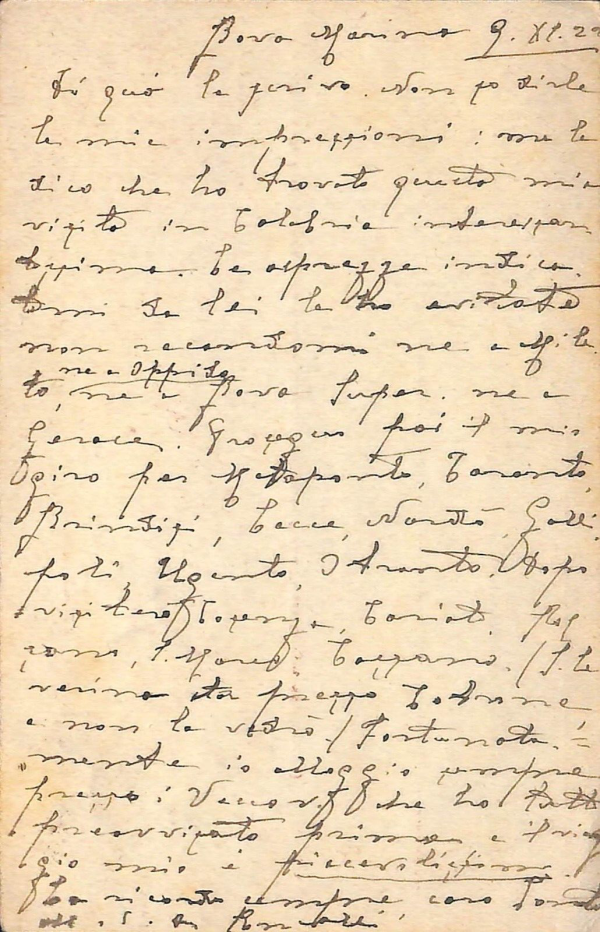 Bova Marina 9. XI. 22
Di quì le scrivo. Non so dirle
le mie impressioni: ma le
dico che ho trovato questa mia
visita in Calabria interessan
tissima. Le asprezze indica
temi da lei le ho evitate
non recandomi ne a Mile
to, ne a Oppido ne a Bova Super. ne a
Gerace. Proseguo poi il mio
giro per Metaponto, Taranto,
Brindisi, Lecce, Nardò, Galli
poli, Ugento, Otranto. Dopo
visiterò Cosenza, Cariati, Ros
sano, S. Marco, Cassano. (S. Se
verina sta presso Cotrone,
e non la vedrò.) Fortunata=
mente io alloggio sempre
presso i Vescovi che ho tutti
preavvisato prima e il viag
gio mio è piacevolissimo.
La ricordo sempre, caro
Roncalli